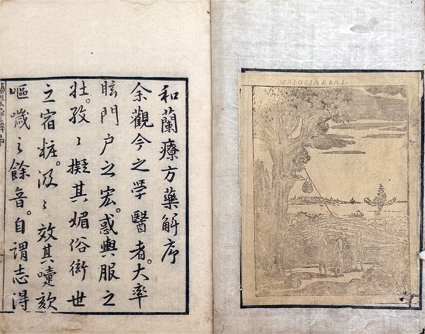 和蘭療方藥解序
余觀今之學醫者。大率
眩門户之宏。惑輿服之
壮。孜〻擬其媚俗衒世
之宿粧。汲〻效其嚏欬
嘔噦之餘音。自謂志得